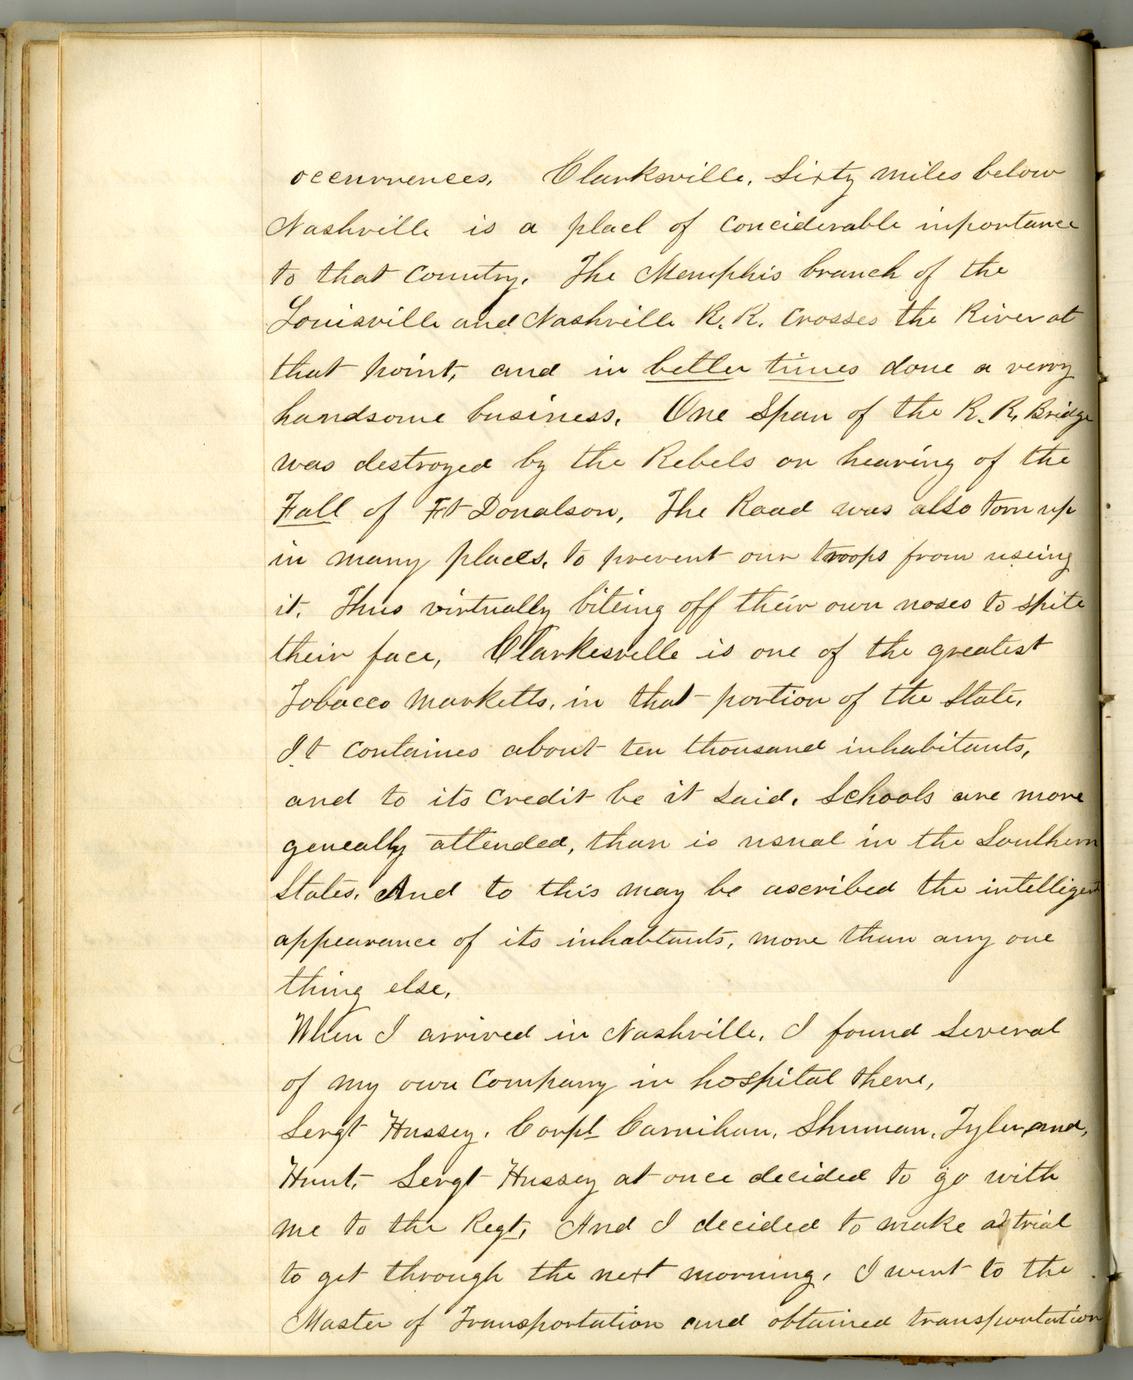 occurrences. Clarksville, Sixty miles below
Nashville is a place of conciderable inportance
to that Country. The Memphis branch of the
Louisville and Nashville R. R. Crosses the River at
that point, and in better times done a verry
handsome business. One Span of the R. R. Bridge
was destroyed by the Rebels on hearing of the
Fall of Ft Donalson, The Road was also torn up
in many places, to prevent our troops from useing
it. Thus virtually biteing off their own noses to spite
their face, Clarkesville is one of the greatest
Tobacco Marketts, in that portion of the State.
It containes about ten thousand inhabitants,
and to its credit be it said. Schools are more
geneally attended, than is usual in the Southern
States. And to this may be ascribed the intelligent
appearance of its inhabtants, more than any one
thing else.
When I arrived in Nashville, I found Several
of my own Company in hospital there,
Sergt Hussey. Corpl Carnihan, Shuman, Tyler and,
Hunt. Sergt Hussey at once decided to go with
me to the Regt, And I decided to make a trial
to get through the next morning. I went to the
Master of Transportation and obtained transportation